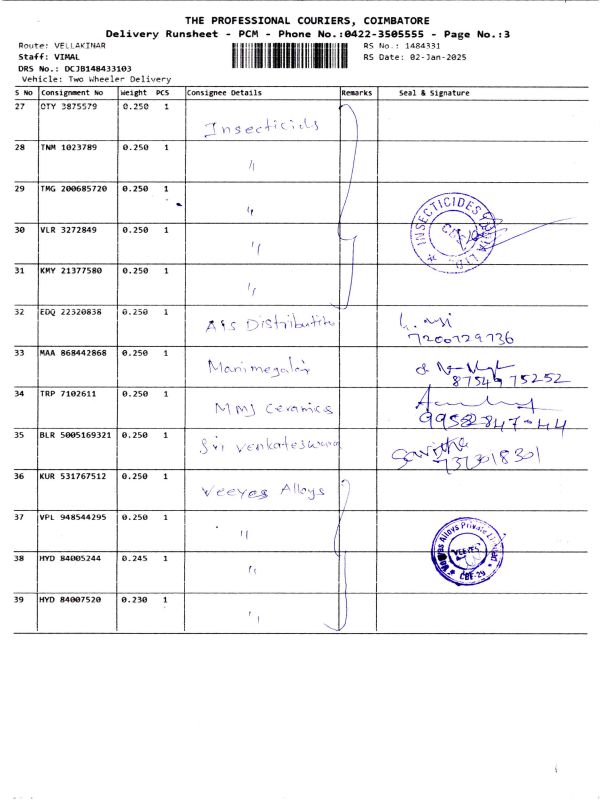 THE PROFESSIONAL COURIERS, COIMBATORE
Delivery Runsheet - PCM - Phone No.:0422-3505555 - Page No.:3
Route: VELLAKINAR RS No.: 1484331
Staff: VIMAL RS Date: 02-Jan-2025
DRS No.: DCJB148433103
Vehicle: Two Wheeler Delivery
S No Consignment No Weight PCS Consignee Details Remarks Seal & Signature
27 OTY 3875579 0.250 1 Insecticids
28 TNM 1023789 0.250 1 "
29 TMG 200685720 0.250 1 "
INSECTICIDES LTD
30 VLR 3272849 0.250 1 "
31 KMY 21377580 0.250 1 "
32 EDQ 22320838 0.250 1 Distributito
7200729736
33 MAA 868442868 0.250 1 Manimegalai
8754975252
34 TRP 7102611 0.250 1 MMJ Ceramics
35 BLR 5005169321 0.250 1 Sri Venkateswara
7373018301
36 KUR 531767512 0.250 1 Veeyes Alloys
37 VPL 948544295 0.250 1 "
Veeyes Alloys Private Limited
VEEYES
CBE-29
38 HYD 84005244 0.245 1 "
39 HYD 84007520 0.230 1 "